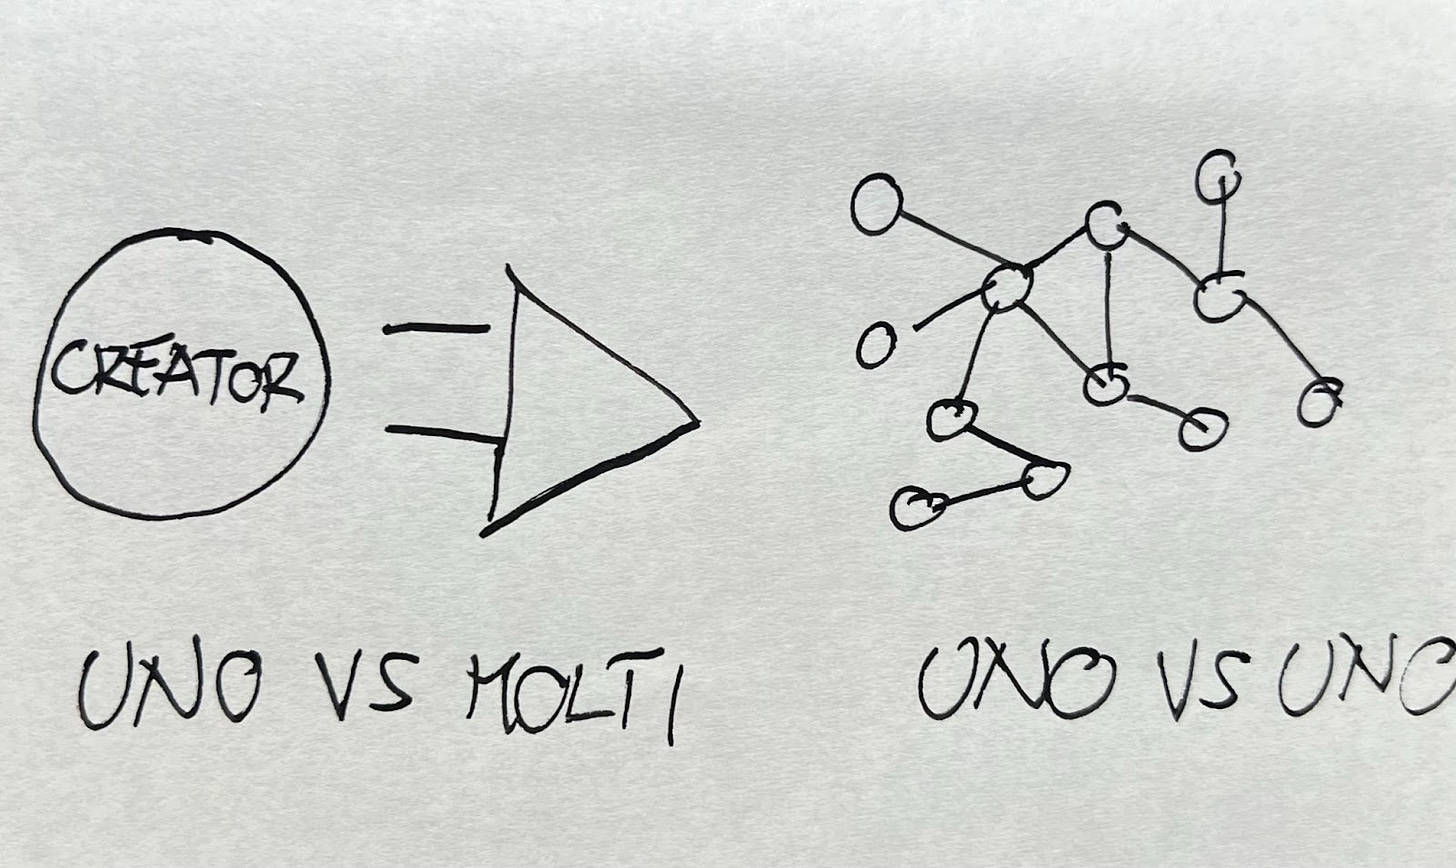 CREATOR
UNO VS MOLTI
UNO VS UNO